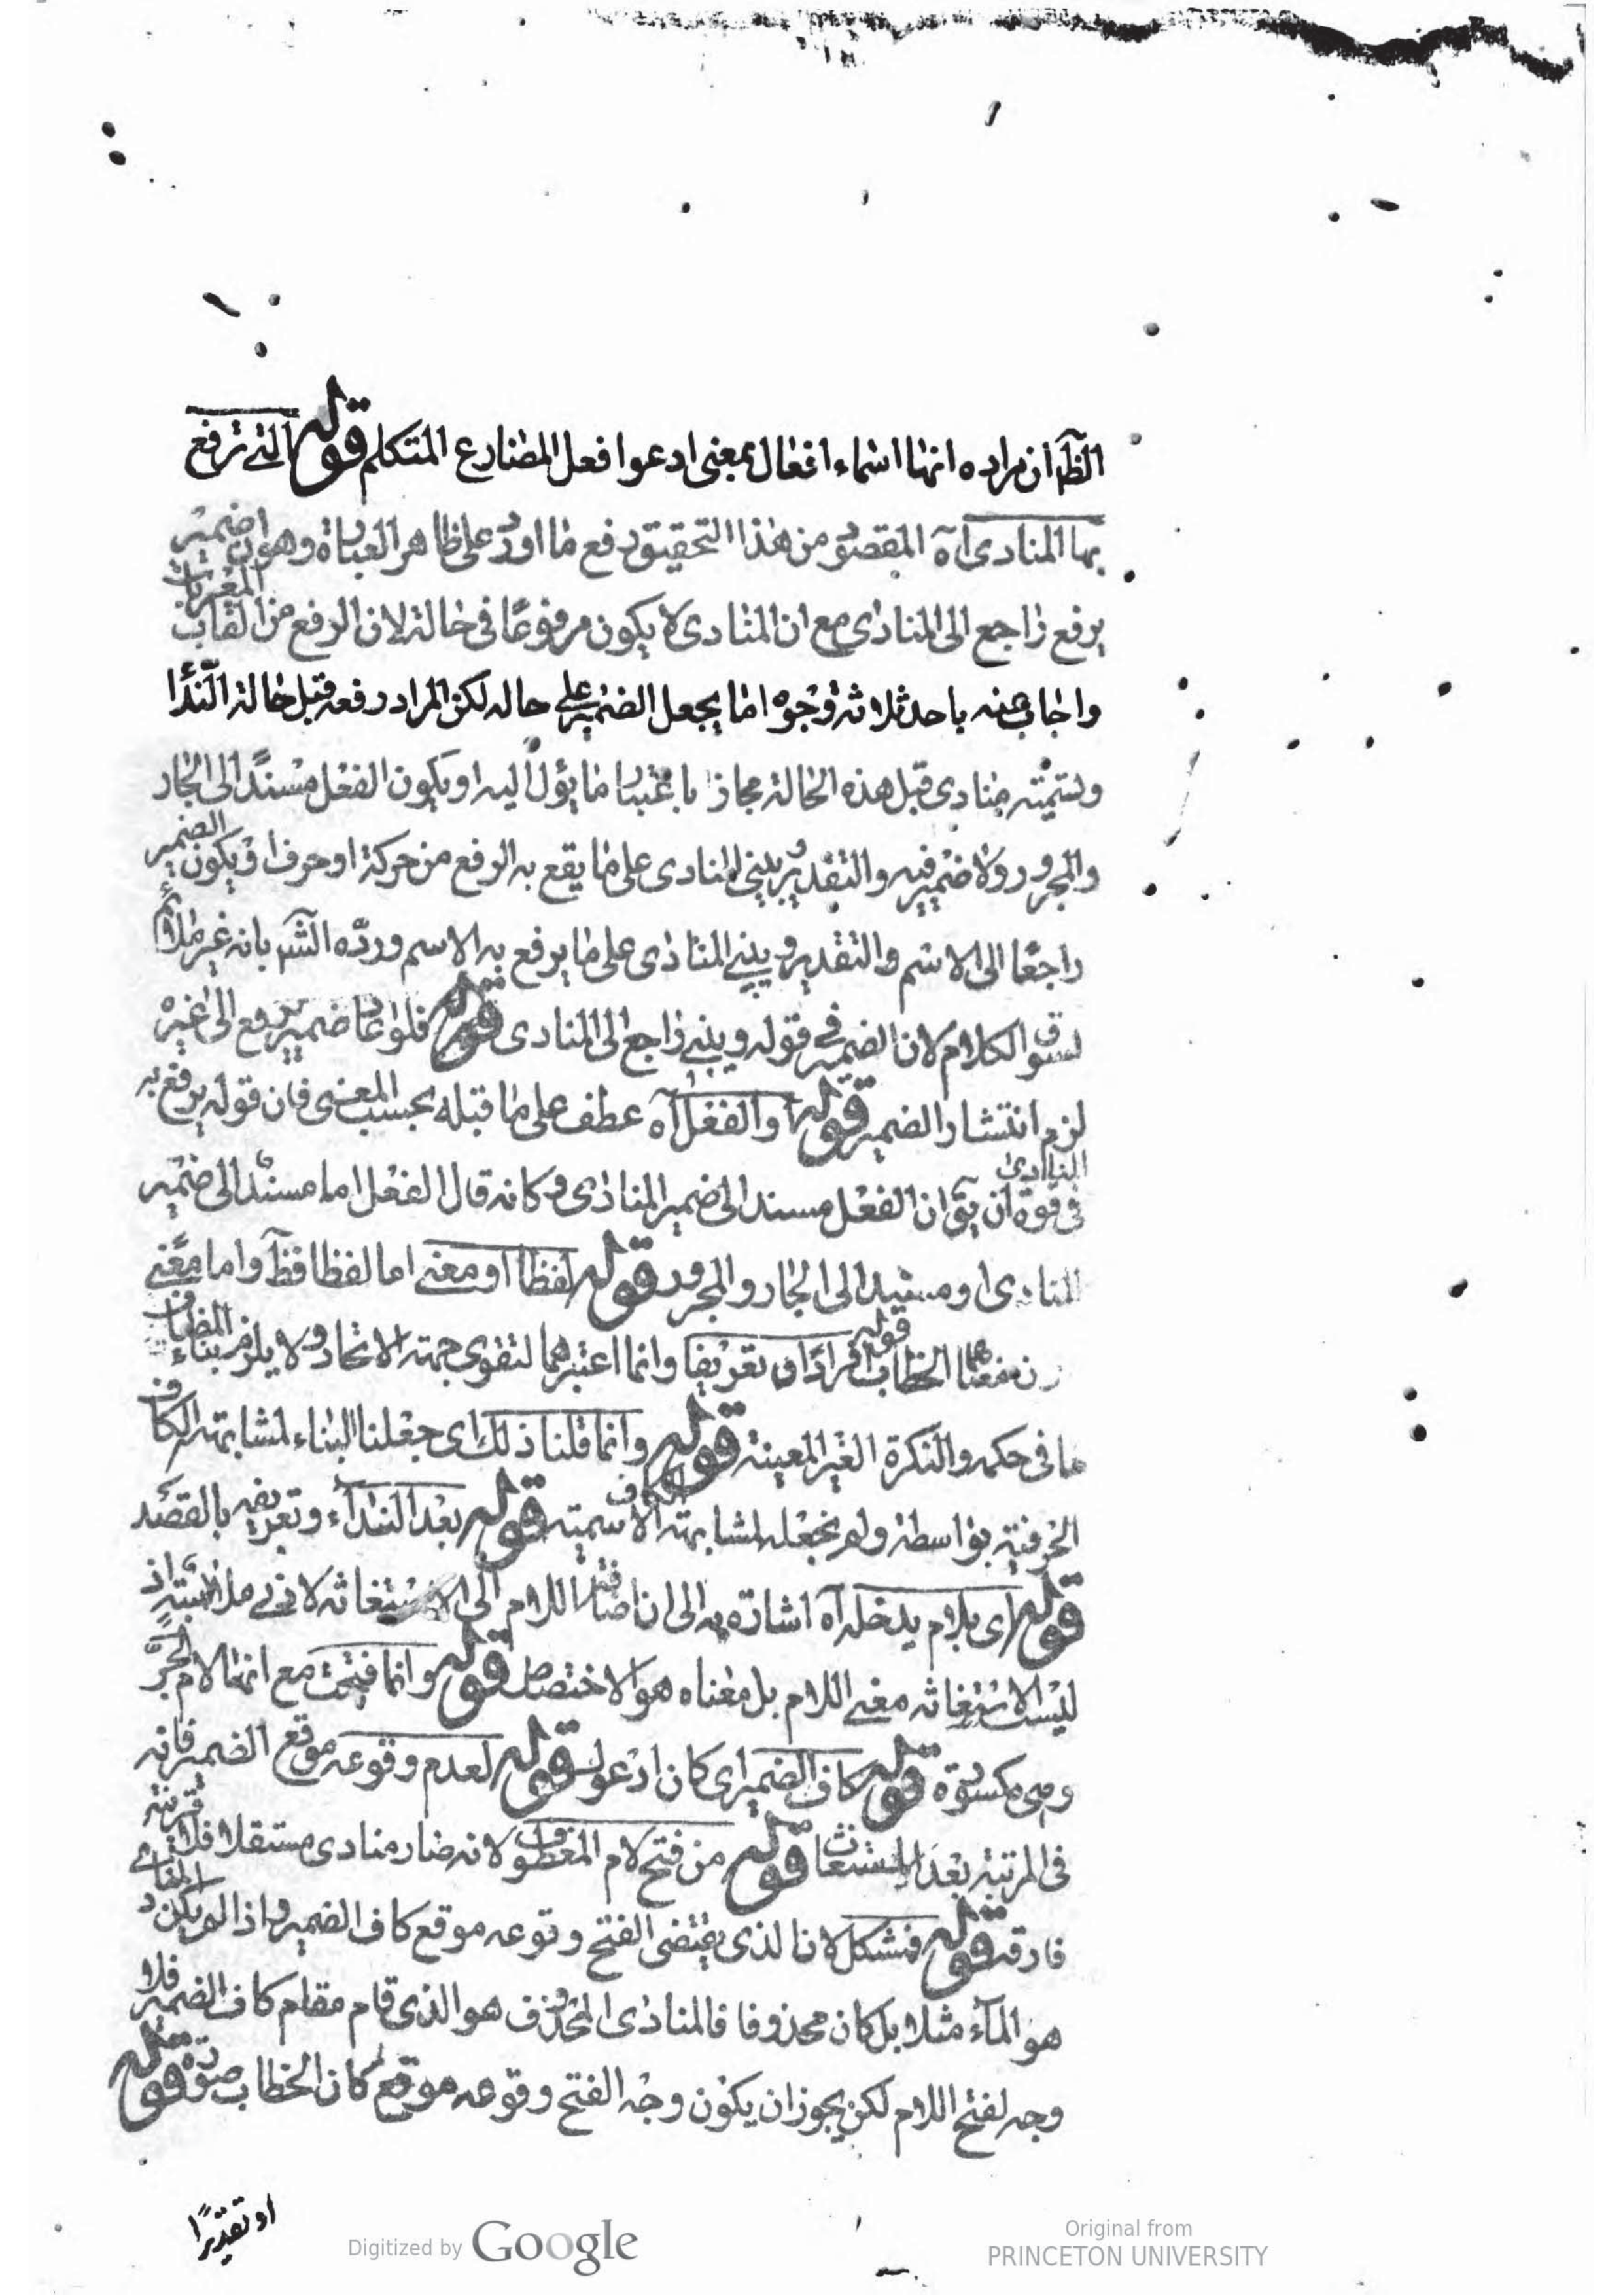 الظ ان مراده انها اسماء افعال بمعنى ادعوا فعل المضارع المتكلم قوله التے ترفع
بها المنادى اه المقصود من هذا التحقيق دفع ما اورد على ظاهر العبارة وهو ان ضمير
يرفع راجع الى المنادى مع ان المنادى لا يكون مرفوعًا فى حالة لان الرفع من القاب المعربات
واجاب عنه باحد ثلاثة وجوه اما بجعل الضمير على حاله لكن المراد رفعه قبل حالة الندا
وتسميته منادى قبل هذه الحالة مجازا باعتبار ما يؤل اليه او يكون الفعل مسندًا الى الجار
والمجرور ولا ضمير فيه والتقدير يبنى المنادى على ما يقع به الرفع من حركة او حرف او يكون الضمير
راجعًا الى الاسم والتقدير ويبنے المنادى على ما يرفع به الاسم وردّه الش بانه غير ملائم
لسوق الكلام لان الضمير فے قوله ويبنے راجع الى المنادى قوله فلو عاد ضمير يرفع الى غيره
لزم انتشار الضمير قوله او الفعل آه عطف على ما قبله بحسب المعنى فان قوله يرفع به
المنادى
فى قوة ان يق ان الفعل مسند الى ضمير المنادى وكانه قال الفعل اما مسند الى ضمير
المنادى او مسند الى الجار والمجرور قوله لفظا او معنے اما لفظا فظ واما معنے
ن معناهما الخطاب قوله افرادًا و تعريفا وانما اعتبرهما لتقوى جهة الاتحاد ولا يلزم بناء المضاف
ما فى حكمه والنكرة الغير المعينة قوله وانما قلنا ذلك اى جعلنا البناء لمشابهته الكاف
الحرفية بواسطة ولم نجعله لمشابهته الكاف الاسمية قوله بعد النداء وتعريفه بالقصد
قوله اى بلام يدخله آه اشارة به الى ان اضافة اللام الى الاستغاثة لادنے ملابسة اذ
ليست الاستغاثة معنے اللام بل معناه هو الاختصاص قوله وانما فتحت مع انها لام الجرّ
وهى مكسورة قوله كاف الضمير اى كان ادعوك قوله لعدم وقوعه موقع الضمير فانه
فى المرتبة بعد المستغاث قوله من فتح لام المعطوف لانه صار منادى مستقلا فلا قرينة
فارقة قوله فشكل لان الذى يقتضى الفتح وقوعه موقع كاف الضمير واذا لم يكن المنادى
هو الماء مثلا بل كان محذوفا فالمنادى المحذوف هو الذى قام مقام كاف الضمير فلا
وجه لفتح اللام لكن يجوز ان يكون وجه الفتح وقوعه موقع كان الخطاب صورة قوله
او تقديرًا
Digitized by Google
Original from
PRINCETON UNIVERSITY